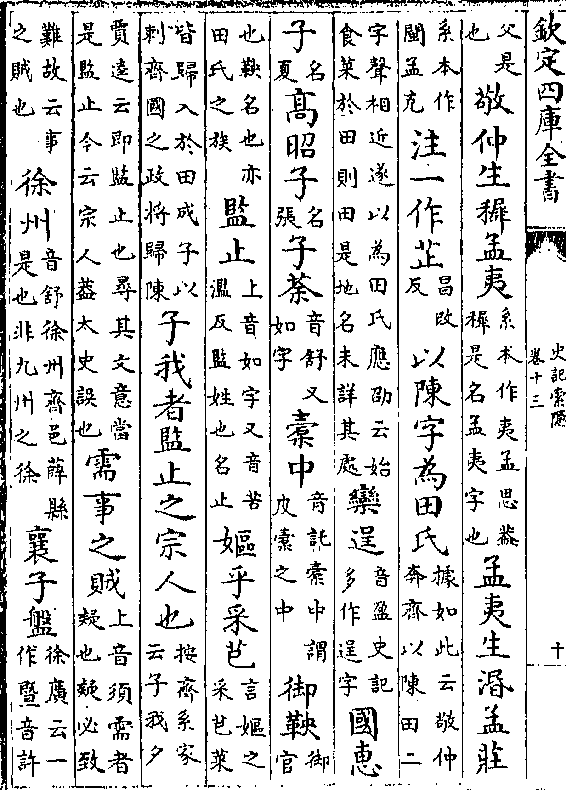 欽定四庫全書
史記索隱
卷十三
十
父是也敬仲生穉孟夷系本作夷孟思葢穉是名孟夷字也孟夷生湣孟莊
系本作閩孟克注一作芷昌改反以陳字為田氏據如此云敬仲奔齊以陳田二
字聲相近遂以為田氏應劭云始食菜於田則田是地名未詳其處欒逞音盈史記多作逞字國惠
子名夏高昭子名張子荼音舒又如字橐中音託橐中謂皮橐之中御鞅御官
也鞅名也亦田氏之族監止上音如字又音苦濫反監姓也名止嫗乎采芑言嫗之采芑菜
皆歸入於田成子以刺齊國之政將歸陳子我者監止之宗人也按齊系家云子我夕
賈逵云即監止也尋其文意當是監止今云宗人葢太史誤也需事之賊上音須需者疑也疑必致
難故云事之賊也徐州音舒徐州齊邑薛縣是也非九州之徐襄子盤徐廣云一作暨音許